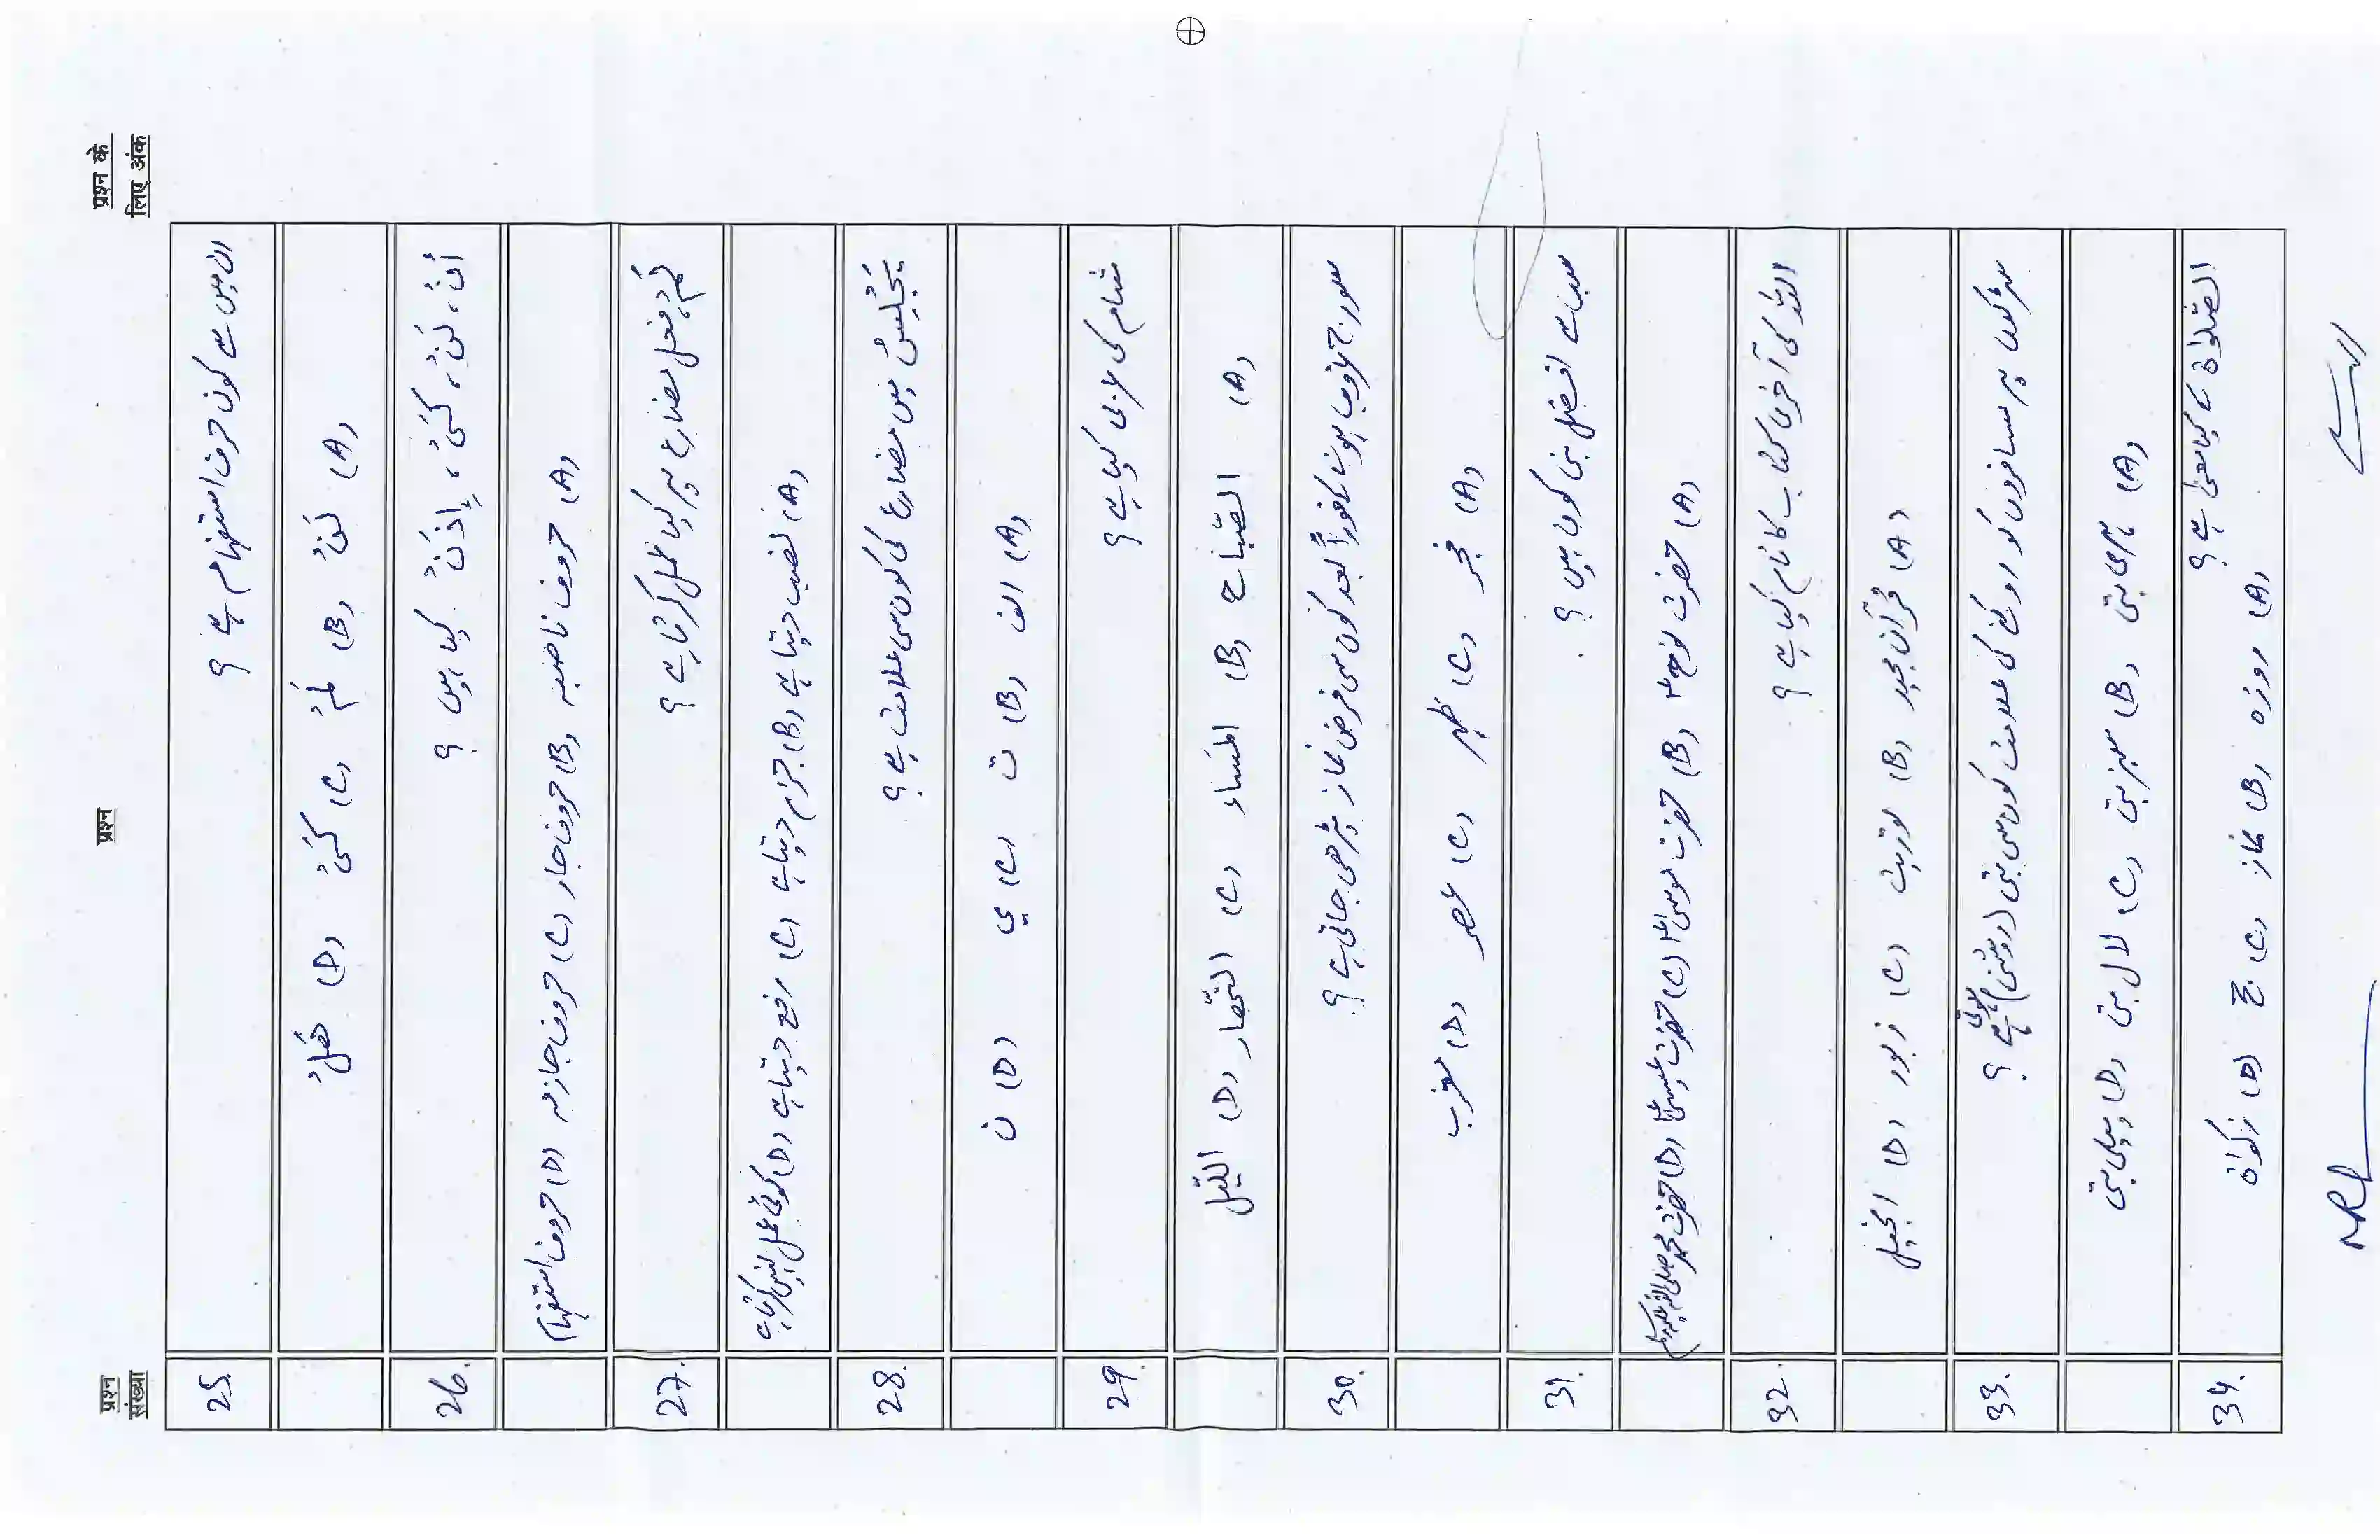 प्रश्न संख्या प्रश्न प्रश्न के लिए अंक
25. ان میں سے کون حرف استفہام ہے ؟
(A) لَنْ (B) لَمْ (C) کَیْ (D) ھَلْ
26. اَنْ، لَنْ، کَیْ، اِذَنْ کیا ہیں ؟
(A) حروف ناصبہ (B) حروف جار (C) حروف جازمہ (D) حروف استفہام
27. لَمْ، فعل مضارع پر کیا عمل کرتا ہے ؟
(A) نصب دیتا ہے (B) جزم دیتا ہے (C) رفع دیتا ہے (D) کوئی عمل نہیں کرتا ہے
28. یَجْلِسُ میں مضارع کی کون سی علامت ہے ؟
(A) الف (B) ت (C) ي (D) ن
29. شام کی عربی کیا ہے ؟
(A) الصّباح (B) المَساء (C) النّھار (D) اللیّل
30. سورج غروب ہونے کا فوراً بعد کون سی فرض نماز پڑھی جاتی ہے ؟
(A) فجر (C) ظہر (C) عصر (D) مغرب
31. سب سے افضل نبی کون ہیں ؟
(A) حضرت نوحؑ (B) حضرت موسیٰؑ (C) حضرت عیسیٰؑ (D) حضرت محمد صلی اللہ علیہ وسلم
32. اللہ کی آخری کتاب کا نام کیا ہے ؟
(A) قرآن مجید (B) توریت (C) زبور (D) انجیل
33. سڑکوں پر مسافروں کو روکنے کی علامت کون سی بتی (روشنی) ہوتی ہے ؟
(A) ہری بتی (B) سبز بتی (C) لال بتی (D) پیلی بتی
34. الصّلوٰة کے کیا معنی ہے ؟
(A) روزہ (B) نماز (C) حج (D) زکوٰة